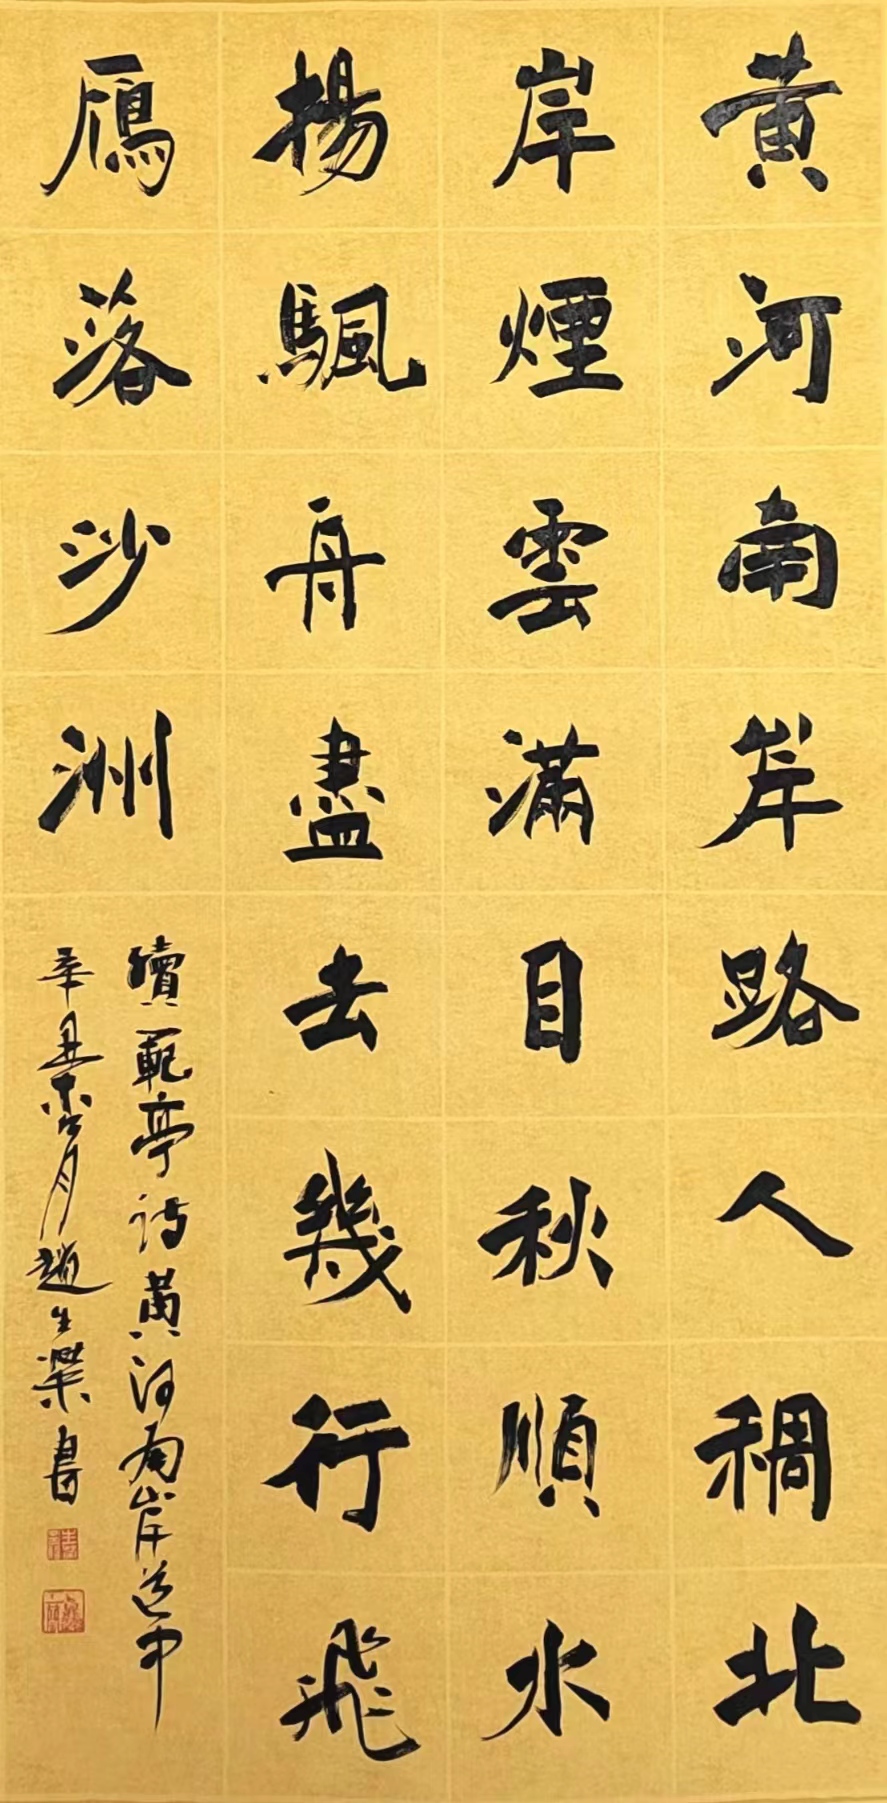 黄河南岸路人稠北
岸煙雲滿目秋順水
揚颿舟盡去幾行飛
鴈落沙洲
續範亭詩黄河南岸道中
辛丑桼月趙生㵽書